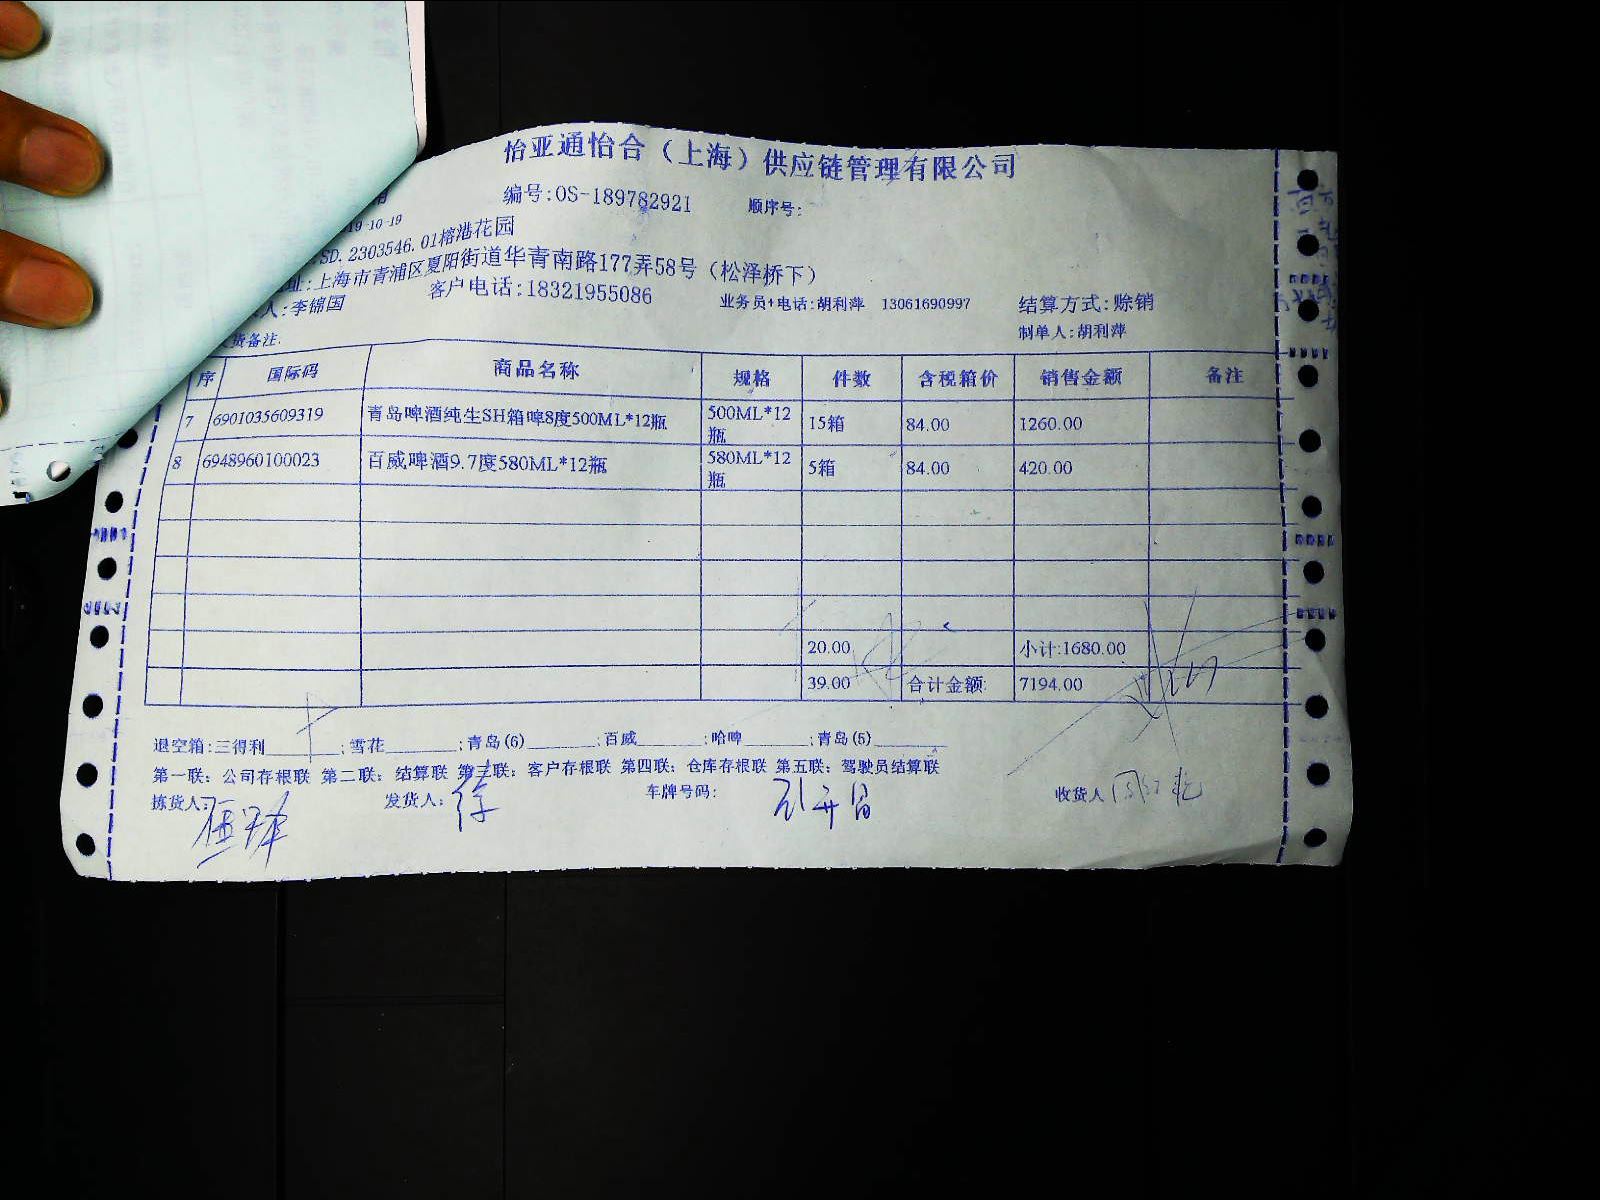 怡亚通怡合（上海）供应链管理有限公司
编号:OS-189782921 顺序号:
19-10-19
SD.2303546.01榕港花园
址:上海市青浦区夏阳街道华青南路177弄58号（松泽桥下）
人:李锦国 客户电话:18321955086 业务员+电话:胡利萍 13061690997 结算方式:赊销
货备注. 制单人:胡利萍
序 国际码 商品名称 规格 件数 含税箱价 销售金额 备注
7 6901035609319 青岛啤酒纯生SH箱啤8度500ML*12瓶 500ML*12瓶 15箱 84.00 1260.00
8 6948960100023 百威啤酒9.7度580ML*12瓶 580ML*12瓶 5箱 84.00 420.00
20.00 小计:1680.00
39.00 合计金额: 7194.00
退空箱:三得利________;雪花________;青岛(6)________;百威________;哈啤________;青岛(5)________
第一联: 公司存根联 第二联: 结算联 第三联: 客户存根联 第四联: 仓库存根联 第五联: 驾驶员结算联
拣货人: 发货人: 徐 车牌号码: 收货人